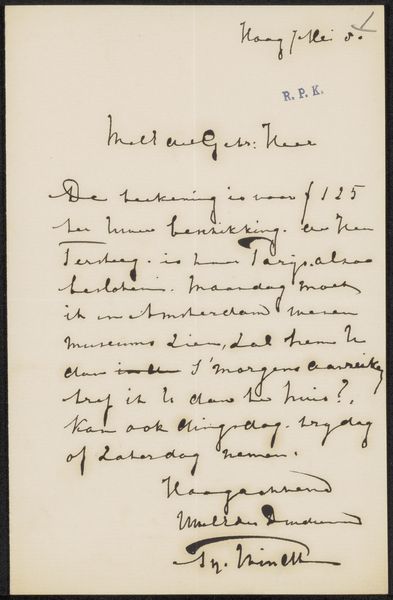 Haag 7 Mei 8.
R. P. K.
WelEdelGebr: Heer
De teekening is voor f 125
ter Uwer beschikking. de Heer
Tersteeg. is naar Parijs. alzoo
besloten. Maandag moet
ik in Amsterdam wezen
museums zien, zal hem U
dan s'morgens aanreiken
tref ik U dan te huis?,
Kan ook dingsdag. vrydag
of Zaterdag nemen.
Hoogachtend
UwelEd Dienaar